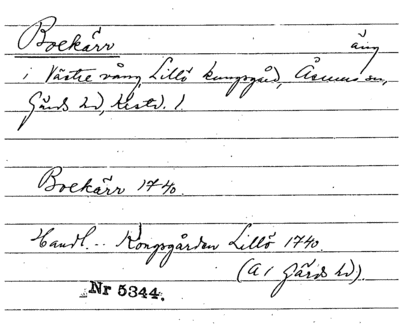 Boekärr äng
i Västre vång, Lillö kungsgård, Åsmus sn,
Gärds hd, Krstd. l.
Boekärr 1740.
Handl... Kongsgården Lillö 1740.
(A 1 Gärds hd).
Nr 5344.